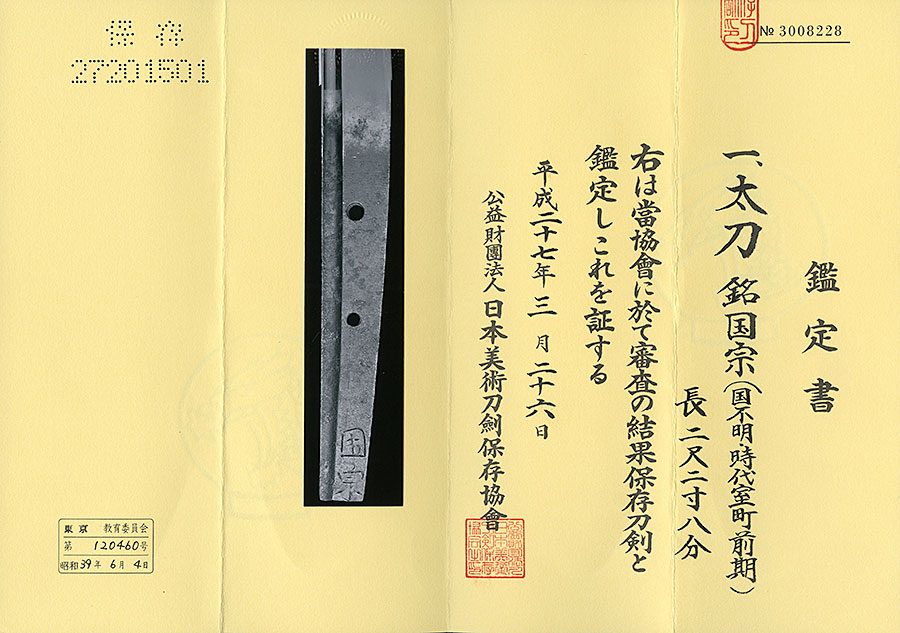 № 3008228
鑑定書
一、太刀 銘国宗(国不明・時代室町前期)
長二尺二寸八分
右は當協會に於て審査の結果保存刀剣と
鑑定しこれを証する
平成二十七年三月二十六日
公益財團法人 日本美術刀劍保存協會
国宗
保存
27201501
東京 教育委員会
第 120460号
昭和39年6月4日